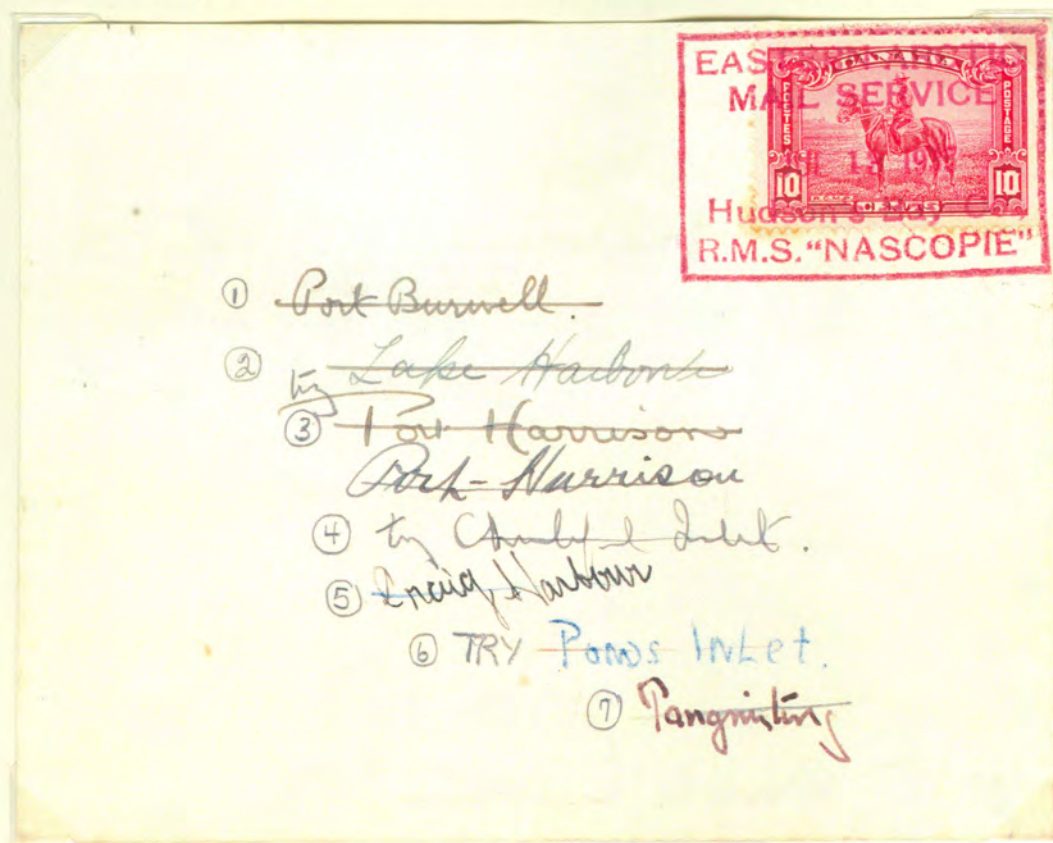 EASTERN ARCTIC
MAIL SERVICE
Hudson's Bay Co.,
R.M.S. "NASCOPIE"
CANADA
POSTES
POSTAGE
10
10
CENTS
① Port Burwell.
② try Lake Harbour
③ Port Harrison
Port-Harrison
④ try Inlet.
⑤ Craig Harbour
⑥ TRY PONDS INLET.
⑦ Pangnirtung